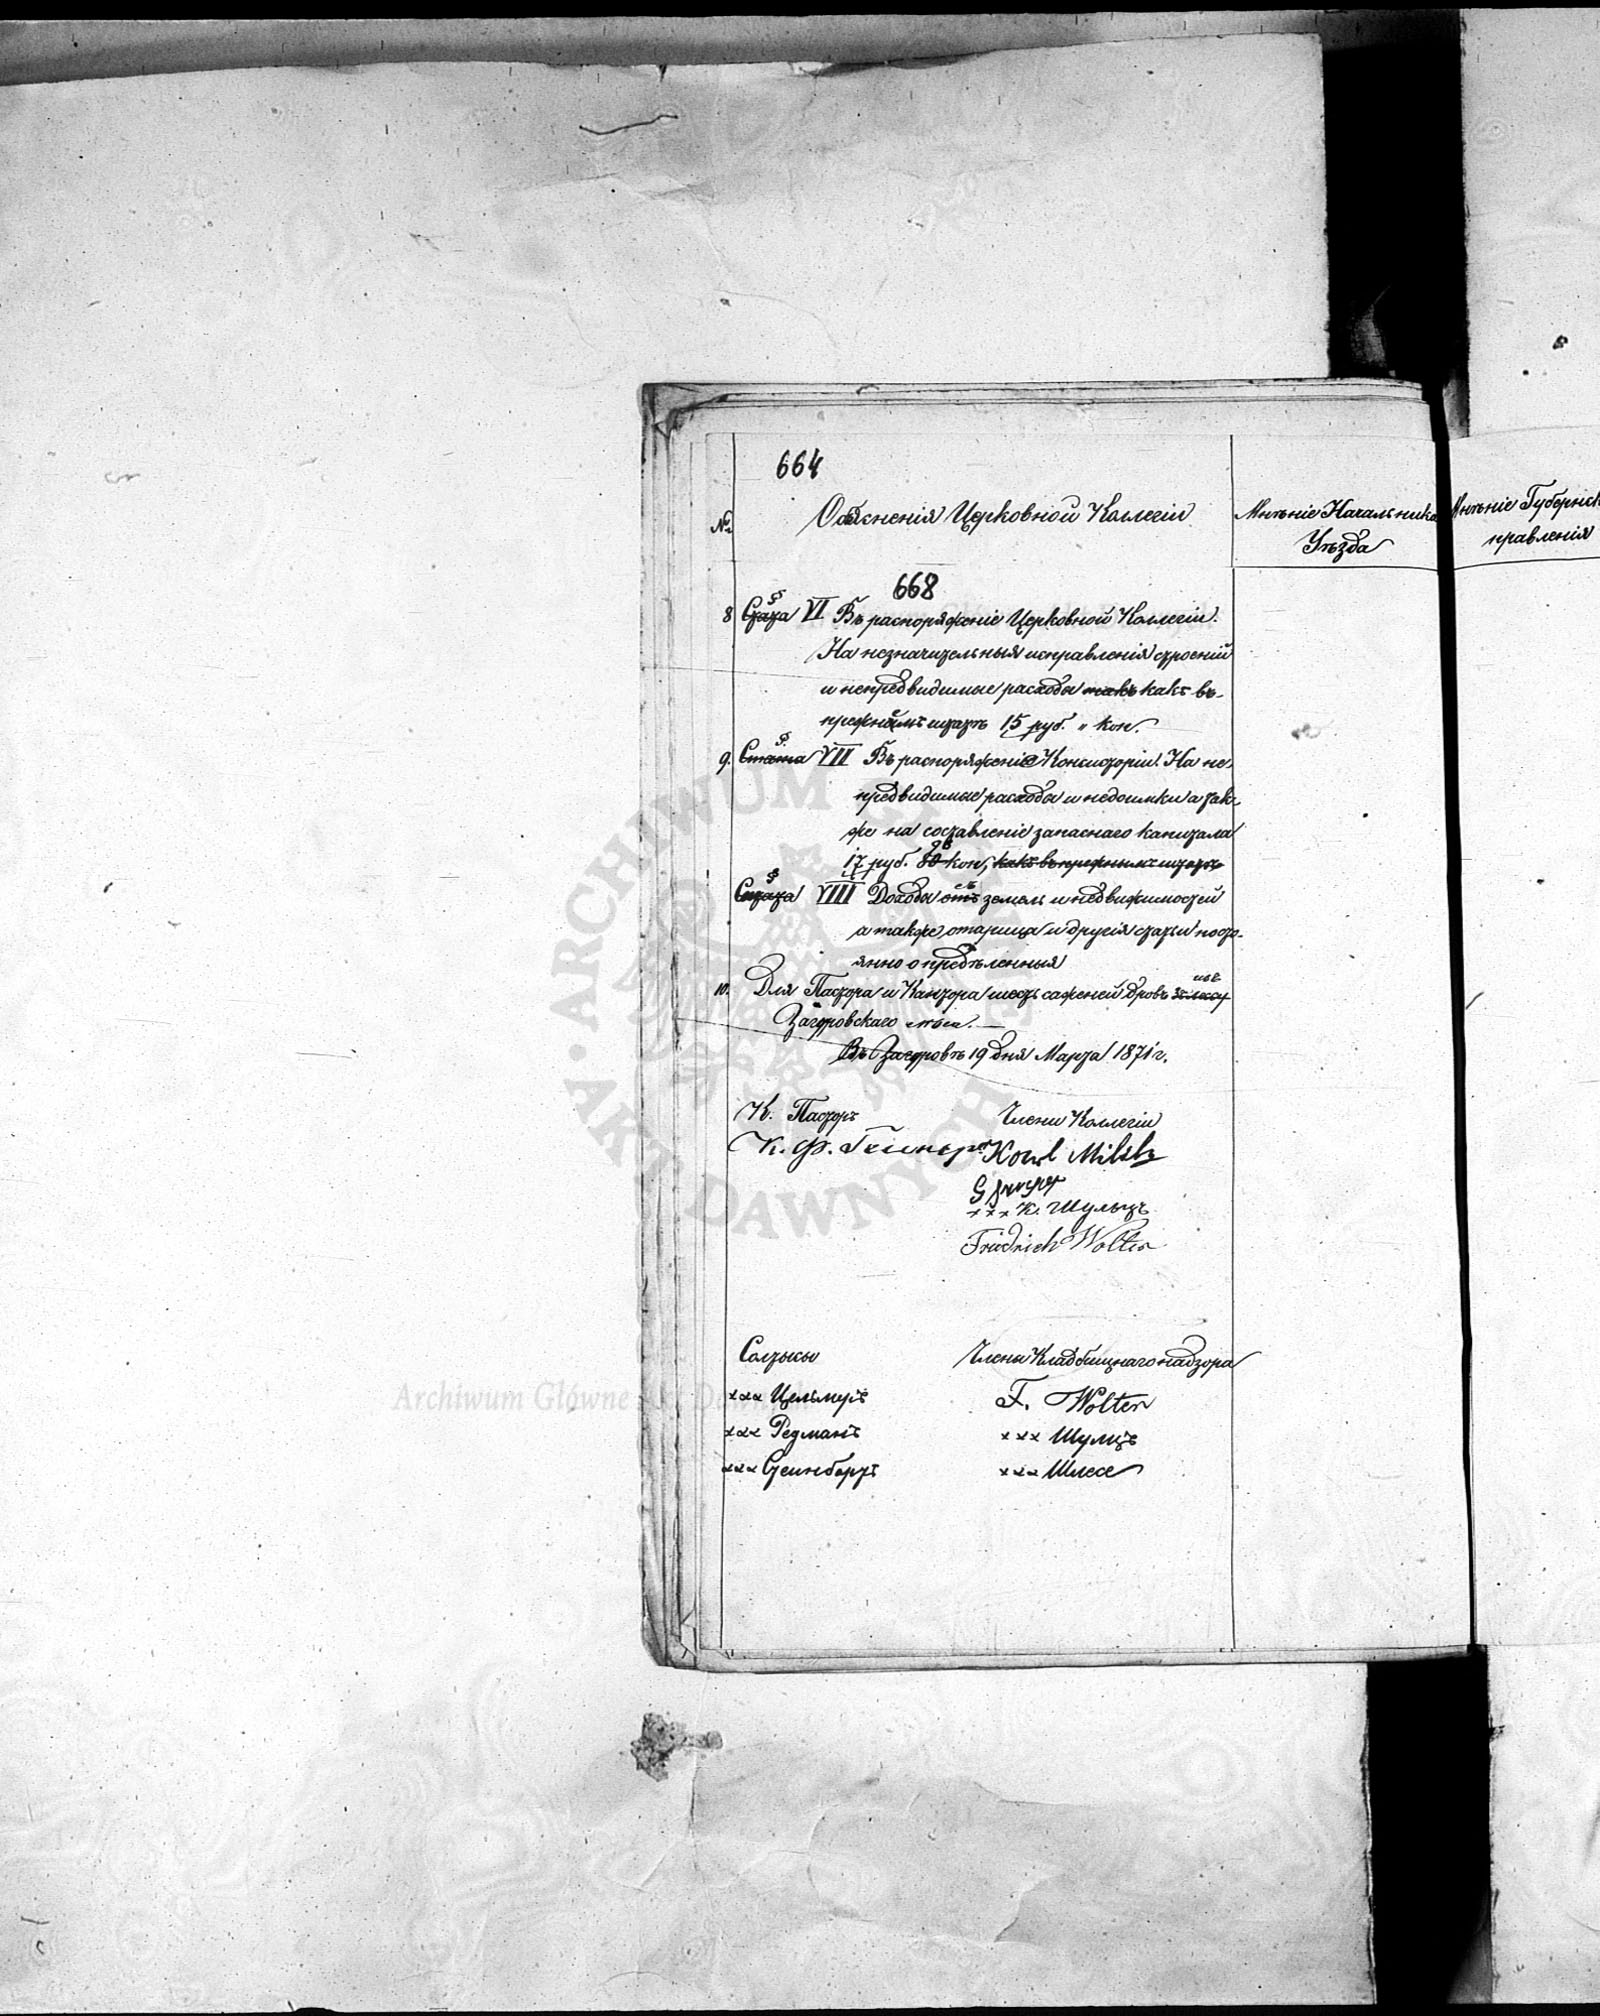 664
№
Объясненія Церковной Коллегіи
Мнѣніе Начальника
Уѣзда
Мнѣніе Губернск
правленія
668
8 Стата § VI Въ распоряженіе Церковной Коллегіи.
На незначительныя исправленія строеній
и непредвидимые расходы такъ какъ въ
прежнемъ штатѣ 15 руб. " коп.
9. Стата § VII Въ распоряженіе Консисторіи. На не-
предвидимые расходы и недоимки а так-
же на составленіе запаснаго капитала
17 руб. коп, какъ въ прежнымъ штатѣ
Стата § VIII Доходы отъ съ земель и недвижимостей
а также и другія статьи посто-
янно опредѣленныя
10. Для Пастора и Кантора шесть саженей дровъ изъ
Загуровскаго лѣса. —
Въ Загуровѣ 19 дня Марта 1871 г.
К. Пасторъ
Члены Коллегіи
К. Ф.
Karl Milsh
xxx К. Шульцъ
Friedrich Wolter
Солтысы
Члены Кладбищнаго надзора
xxx Цельмеръ
F. Wolter
xxx Редманъ
xxx Шулцъ
xxx Стейнбартъ
xxx Шлесе
ARCHIWUM
AKT DAWNYCH
Archiwum Główne Akt Dawnych